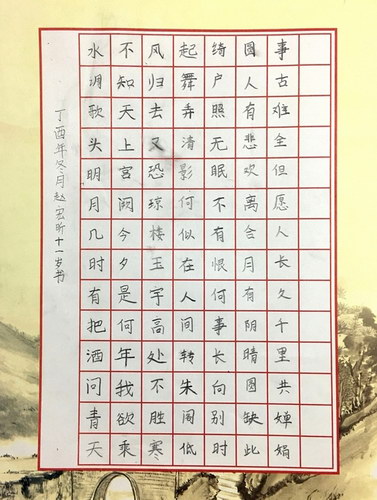 水调歌头明月几时有把酒问青天
不知天上宫阙今夕是何年我欲乘
风归去又恐琼楼玉宇高处不胜寒
起舞弄清影何似在人间转朱阁低
绮户照无眠不有恨何事长向别时
圆人有悲欢离合月有阴晴圆缺此
事古难全但愿人长久千里共婵娟
丁酉年冬月赵宏昕十一岁书